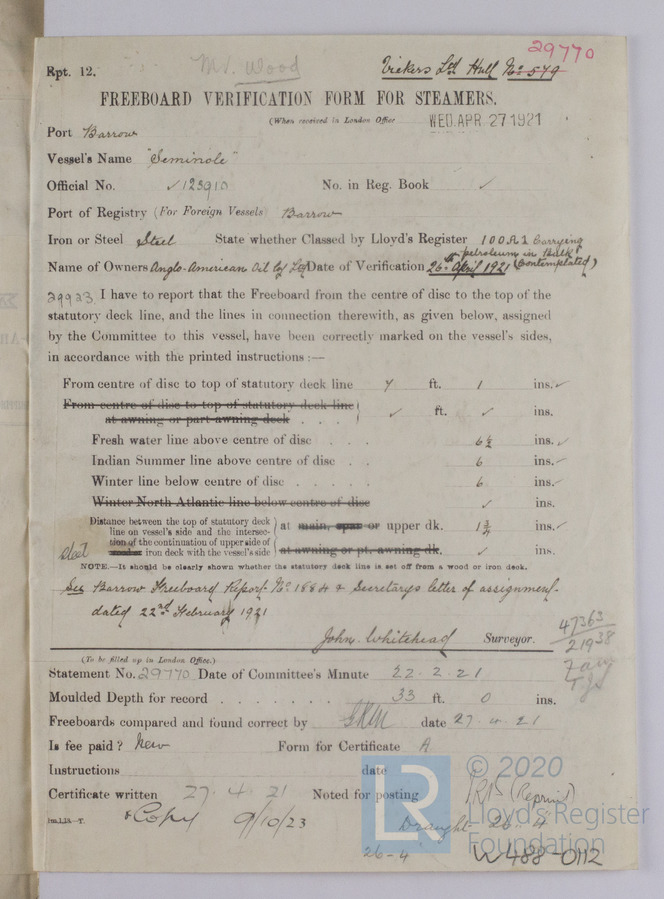 29770
Rpt. 12. Mr. Wood Vickers Ltd Hull No 579
FREEBOARD VERIFICATION FORM FOR STEAMERS.
(When received in London Office WED. APR. 27 1921
Port Barrow
Vessel's Name "Seminole"
Official No. ✓ 123910 No. in Reg. Book ✓
Port of Registry (For Foreign Vessels Barrow
Iron or Steel Steel State whether Classed by Lloyd's Register 100A1 Carrying
petroleum in bulk
Name of Owners Anglo-American Oil Coy Ltd Date of Verification 26th April 1921 (Contemplated)
29923 I have to report that the Freeboard from the centre of disc to the top of the
statutory deck line, and the lines in connection therewith, as given below, assigned
by the Committee to this vessel, have been correctly marked on the vessel's sides,
in accordance with the printed instructions :—
From centre of disc to top of statutory deck line 7 ft. 1 ins. ✓
From centre of disc to top of statutory deck line
at awning or part awning deck . . . ✓ ft. ✓ ins.
Fresh water line above centre of disc . . . 6½ ins. ✓
Indian Summer line above centre of disc . . 6 ins. ✓
Winter line below centre of disc . . . . 6 ins. ✓
Winter North Atlantic line below centre of disc ✓ ins.
Distance between the top of statutory deck
line on vessel's side and the intersec- at main, spar or upper dk. 1¾ ins. ✓
tion of the continuation of upper side of
steel iron deck with the vessel's side at awning or pt. awning dk. ✓ ins.
NOTE.—It should be clearly shown whether the statutory deck line is set off from a wood or iron deck.
See Barrow Freeboard Report No 1884 & Secretarys letter of assignment
dated 22nd February 1921
47363
John Whitehead Surveyor. 21938
(To be filled up in London Office.)
Statement No. 29770 Date of Committee's Minute 22. 2. 21
Moulded Depth for record . . . . . . . 33 ft. 0 ins.
Freeboards compared and found correct by date 27. 4. 21
Is fee paid? New Form for Certificate A
Instructions date
Certificate written 27. 4. 21 Noted for posting (Reprint)
Copy 9/10/23 Draught 26-4
26-4
LR © 2020
Lloyd's Register
Foundation
W488-0112